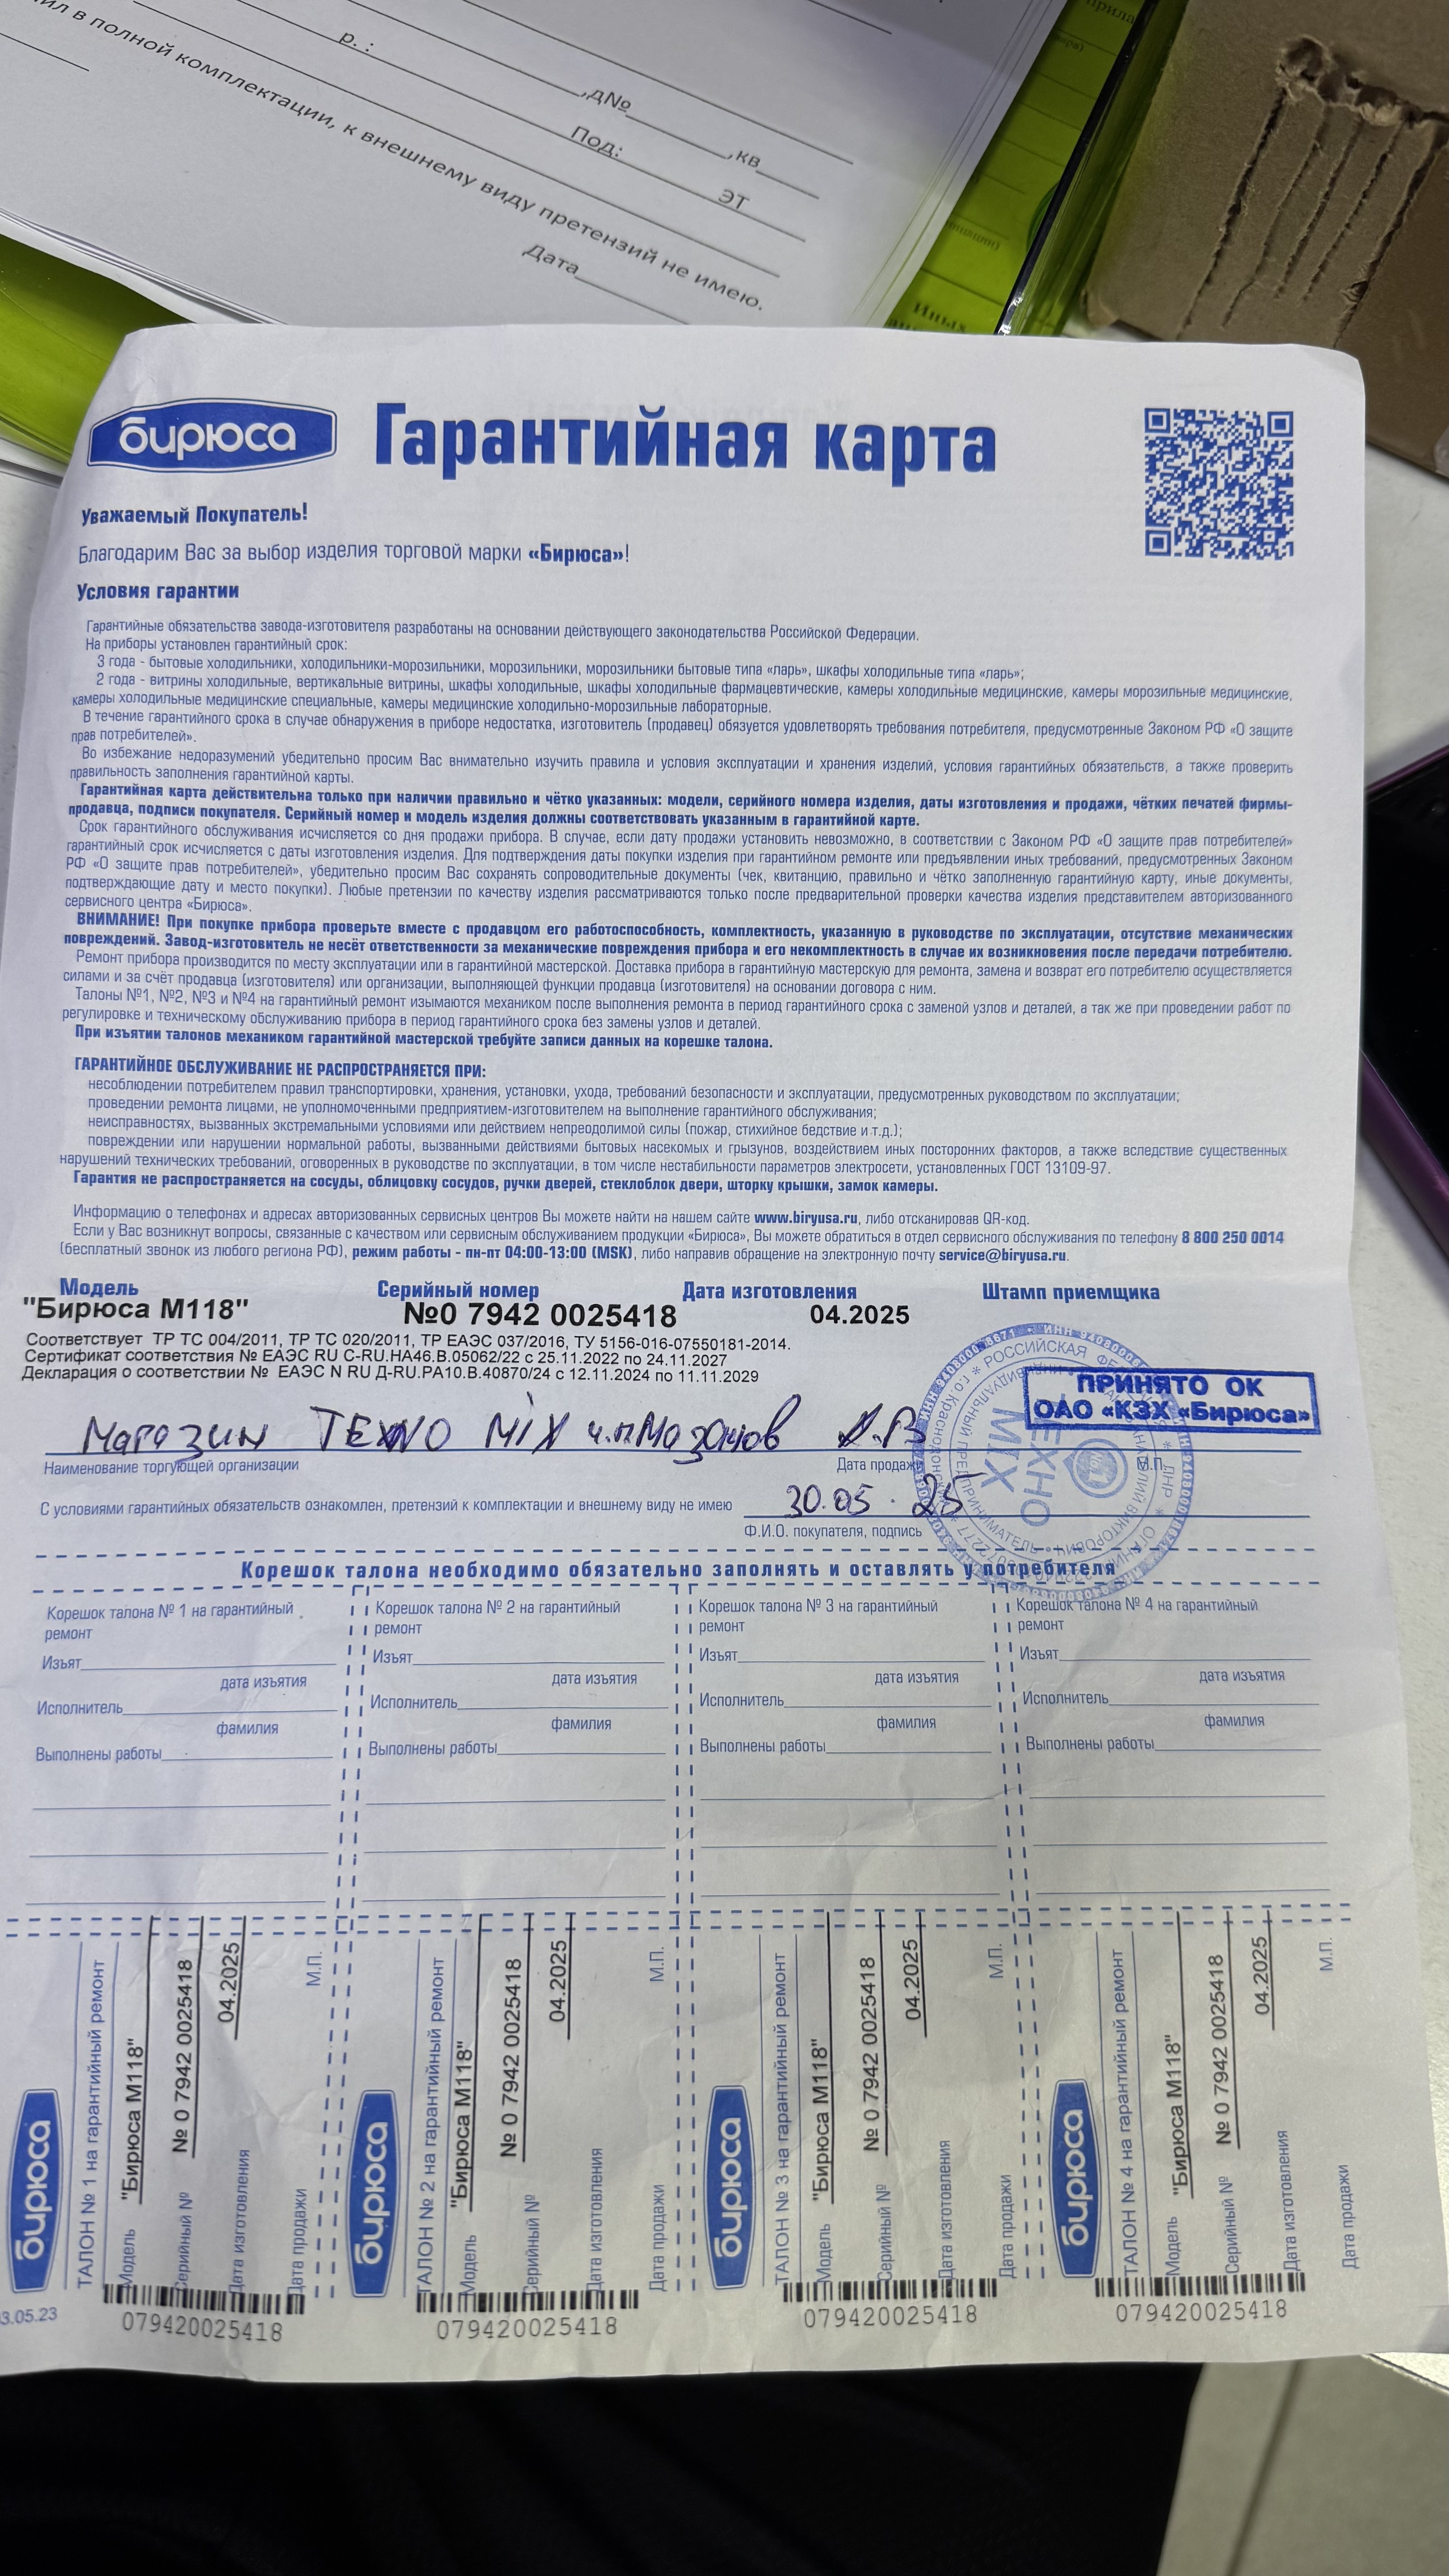 ил в полной комплектации, к внешнему виду претензий не имею.
р. :
,д№
,кв
Под:
эт
Дата
бирюса
Гарантийная карта
Уважаемый Покупатель!
Благодарим Вас за выбор изделия торговой марки «Бирюса»!
Условия гарантии
Гарантийные обязательства завода-изготовителя разработаны на основании действующего законодательства Российской Федерации.
На приборы установлен гарантийный срок:
3 года - бытовые холодильники, холодильники-морозильники, морозильники, морозильники бытовые типа «ларь», шкафы холодильные типа «ларь»;
2 года - витрины холодильные, вертикальные витрины, шкафы холодильные, шкафы холодильные фармацевтические, камеры холодильные медицинские, камеры морозильные медицинские,
камеры холодильные медицинские специальные, камеры медицинские холодильно-морозильные лабораторные.
В течение гарантийного срока в случае обнаружения в приборе недостатка, изготовитель (продавец) обязуется удовлетворять требования потребителя, предусмотренные Законом РФ «О защите
прав потребителей».
Во избежание недоразумений убедительно просим Вас внимательно изучить правила и условия эксплуатации и хранения изделий, условия гарантийных обязательств, а также проверить
правильность заполнения гарантийной карты.
Гарантийная карта действительна только при наличии правильно и чётко указанных: модели, серийного номера изделия, даты изготовления и продажи, чётких печатей фирмы-
продавца, подписи покупателя. Серийный номер и модель изделия должны соответствовать указанным в гарантийной карте.
Срок гарантийного обслуживания исчисляется со дня продажи прибора. В случае, если дату продажи установить невозможно, в соответствии с Законом РФ «О защите прав потребителей»
гарантийный срок исчисляется с даты изготовления изделия. Для подтверждения даты покупки изделия при гарантийном ремонте или предъявлении иных требований, предусмотренных Законом
РФ «О защите прав потребителей», убедительно просим Вас сохранять сопроводительные документы (чек, квитанцию, правильно и чётко заполненную гарантийную карту, иные документы,
подтверждающие дату и место покупки). Любые претензии по качеству изделия рассматриваются только после предварительной проверки качества изделия представителем авторизованного
сервисного центра «Бирюса».
ВНИМАНИЕ! При покупке прибора проверьте вместе с продавцом его работоспособность, комплектность, указанную в руководстве по эксплуатации, отсутствие механических
повреждений. Завод-изготовитель не несёт ответственности за механические повреждения прибора и его некомплектность в случае их возникновения после передачи потребителю.
Ремонт прибора производится по месту эксплуатации или в гарантийной мастерской. Доставка прибора в гарантийную мастерскую для ремонта, замена и возврат его потребителю осуществляется
силами и за счёт продавца (изготовителя) или организации, выполняющей функции продавца (изготовителя) на основании договора с ним.
Талоны №1, №2, №3 и №4 на гарантийный ремонт изымаются механиком после выполнения ремонта в период гарантийного срока с заменой узлов и деталей, а так же при проведении работ по
регулировке и техническому обслуживанию прибора в период гарантийного срока без замены узлов и деталей.
При изъятии талонов механиком гарантийной мастерской требуйте записи данных на корешке талона.
ГАРАНТИЙНОЕ ОБСЛУЖИВАНИЕ НЕ РАСПРОСТРАНЯЕТСЯ ПРИ:
несоблюдении потребителем правил транспортировки, хранения, установки, ухода, требований безопасности и эксплуатации, предусмотренных руководством по эксплуатации;
проведении ремонта лицами, не уполномоченными предприятием-изготовителем на выполнение гарантийного обслуживания;
неисправностях, вызванных экстремальными условиями или действием непреодолимой силы (пожар, стихийное бедствие и т.д.);
повреждении или нарушении нормальной работы, вызванными действиями бытовых насекомых и грызунов, воздействием иных посторонних факторов, а также вследствие существенных
нарушений технических требований, оговоренных в руководстве по эксплуатации, в том числе нестабильности параметров электросети, установленных ГОСТ 13109-97.
Гарантия не распространяется на сосуды, облицовку сосудов, ручки дверей, стеклоблок двери, шторку крышки, замок камеры.
Информацию о телефонах и адресах авторизованных сервисных центров Вы можете найти на нашем сайте www.biryusa.ru, либо отсканировав QR-код.
Если у Вас возникнут вопросы, связанные с качеством или сервисным обслуживанием продукции «Бирюса», Вы можете обратиться в отдел сервисного обслуживания по телефону 8 800 250 0014
(бесплатный звонок из любого региона РФ), режим работы - пн-пт 04:00-13:00 (MSK), либо направив обращение на электронную почту service@biryusa.ru.
Модель Серийный номер Дата изготовления Штамп приемщика
"Бирюса М118" №0 7942 0025418 04.2025
Соответствует ТР ТС 004/2011, ТР ТС 020/2011, ТР ЕАЭС 037/2016, ТУ 5156-016-07550181-2014.
Сертификат соответствия № ЕАЭС RU С-RU.НА46.В.05062/22 с 25.11.2022 по 24.11.2027
Декларация о соответствии № ЕАЭС N RU Д-RU.РА10.В.40870/24 с 12.11.2024 по 11.11.2029
ПРИНЯТО ОК
ОАО «КЗХ «Бирюса»
Магазин ТЕХNO MiX ч.п. Мазанов А.В
Наименование торгующей организации Дата продажи М.П.
РОССИЙСКАЯ
ТЕХНО
MIX
С условиями гарантийных обязательств ознакомлен, претензий к комплектации и внешнему виду не имею 30.05.25
Ф.И.О. покупателя, подпись
Корешок талона необходимо обязательно заполнять и оставлять у потребителя
Корешок талона № 1 на гарантийный
ремонт
Изъят
дата изъятия
Исполнитель
фамилия
Выполнены работы
Корешок талона № 2 на гарантийный
ремонт
Изъят
дата изъятия
Исполнитель
фамилия
Выполнены работы
Корешок талона № 3 на гарантийный
ремонт
Изъят
дата изъятия
Исполнитель
фамилия
Выполнены работы
Корешок талона № 4 на гарантийный
ремонт
Изъят
дата изъятия
Исполнитель
фамилия
Выполнены работы
бирюса
ТАЛОН № 1 на гарантийный ремонт
Модель "Бирюса М118"
Серийный № № 0 7942 0025418
Дата изготовления 04.2025
Дата продажи М.П.
079420025418
бирюса
ТАЛОН № 2 на гарантийный ремонт
Модель "Бирюса М118"
Серийный № № 0 7942 0025418
Дата изготовления 04.2025
Дата продажи М.П.
079420025418
бирюса
ТАЛОН № 3 на гарантийный ремонт
Модель "Бирюса М118"
Серийный № № 0 7942 0025418
Дата изготовления 04.2025
Дата продажи М.П.
079420025418
бирюса
ТАЛОН № 4 на гарантийный ремонт
Модель "Бирюса М118"
Серийный № № 0 7942 0025418
Дата изготовления 04.2025
Дата продажи М.П.
079420025418
3.05.23